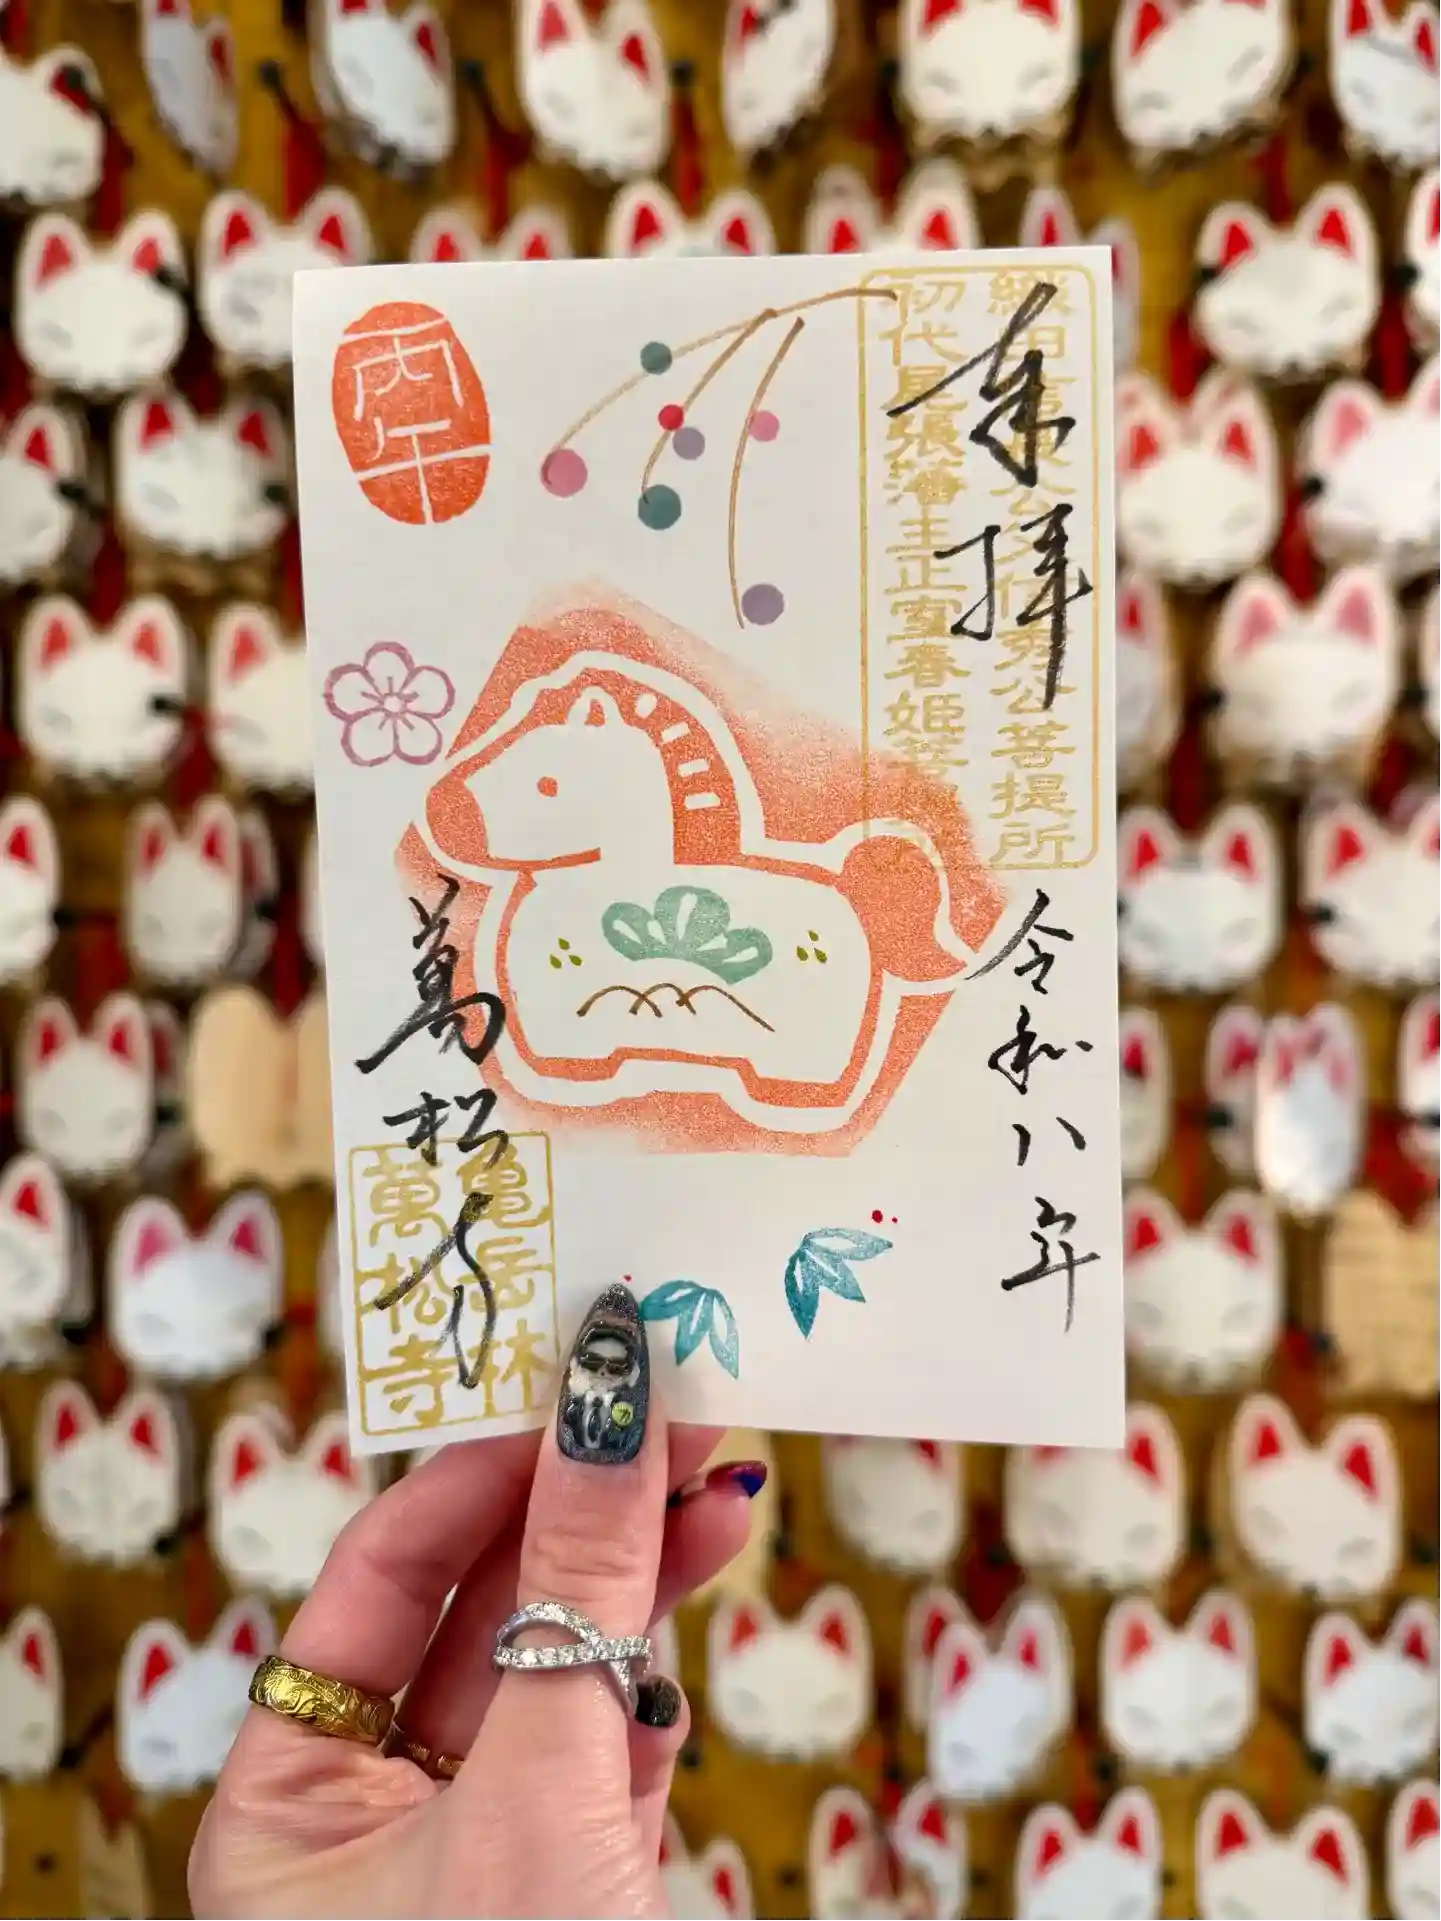 奉拝
令和八年
織田信長公父信秀公菩提所
初代尾張藩主正室春姫菩提所
丙午
萬松寺
亀岳林
萬松寺